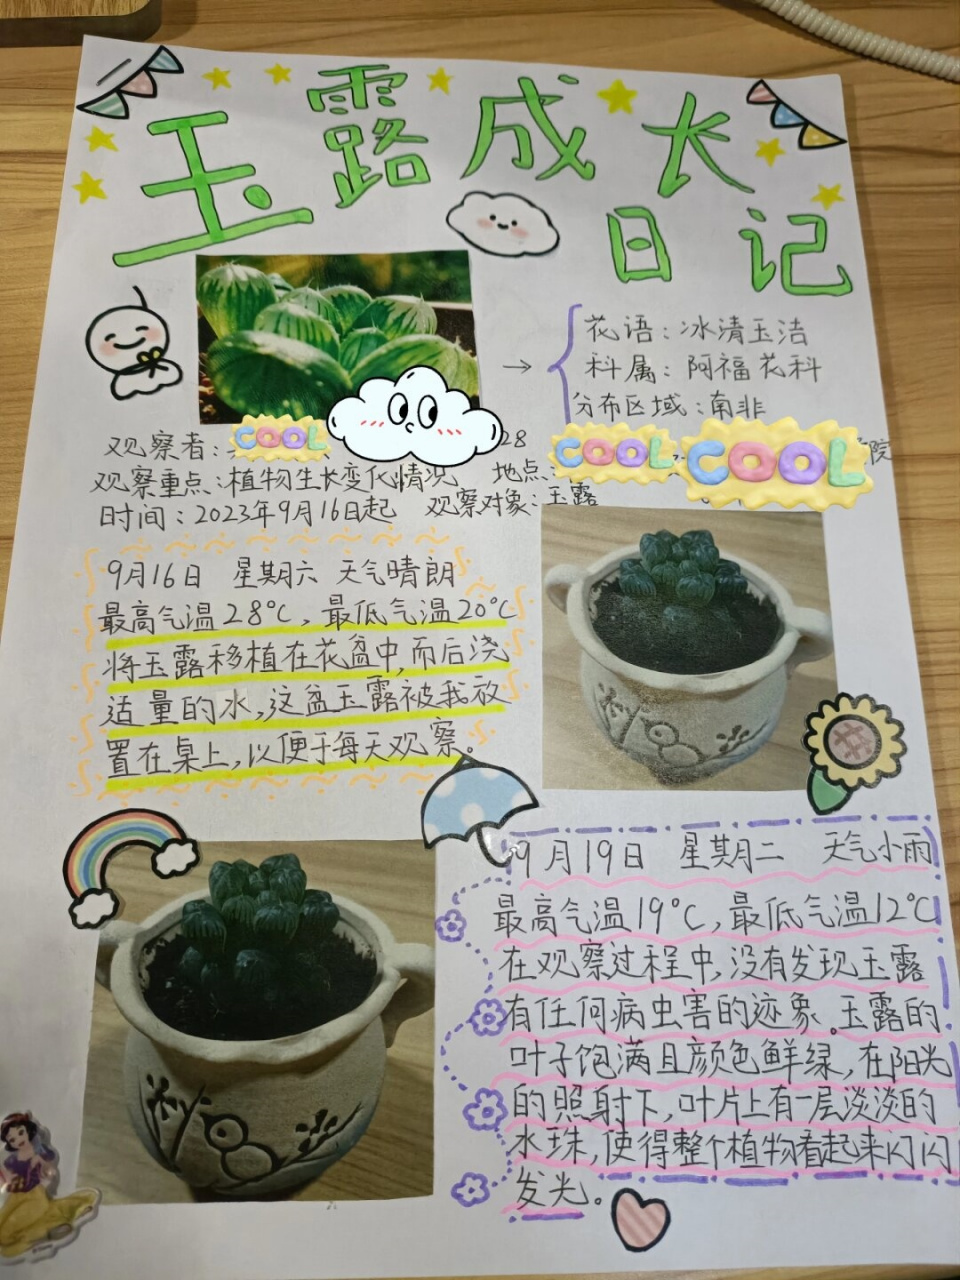 玉露成长
日记
花语：冰清玉洁
科属：阿福花科
分布区域：南非
观察者：COOL 28 COOL COOL 院
观察重点：植物生长变化情况 地点：
时间：2023年9月16日起 观察对象：玉露
9月16日 星期六 天气晴朗
最高气温28°C，最低气温20°C
将玉露移植在花盆中，而后浇
适量的水，这盆玉露被我放
置在桌上，以便于每天观察。
9月19日 星期二 天气小雨
最高气温19°C，最低气温12°C
在观察过程中，没有发现玉露
有任何病虫害的迹象。玉露的
叶子饱满且颜色鲜绿，在阳光
的照射下，叶片上有一层淡淡的
水珠，使得整个植物看起来闪闪
发光。